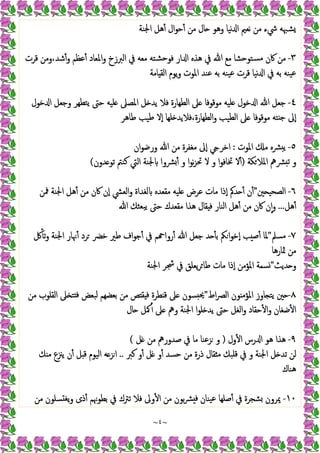 يشبهه شيء من نعيم الدنيا وهو حال من أحوال أهل الجنة
٣- من كان مستوحشا مع الله في هذه الدار فوحشته معه في البرزخ والمعاد أعظم وأشد،ومن قرت
عينه به في الدنيا قرت عينه به عند الموت ويوم القيامة
٤- جعل الله الدخول عليه موقوفا على الطهارة فلا يدخل المصلي عليه حتى يتطهر وجعل الدخول
إلى جنته موقوفا على الطيب والطهارة،فلايدخلها إلا طيب طاهر
٥- يبشره ملك الموت : اخرجي إلى مغفرة من الله ورضوان
و تبشرهم الملائكة (ألا تخافوا و لا تحزنوا و أبشروا بالجنة التي كنتم توعدون)
٦- الصحيحين"أن أحدكم إذا مات عرض عليه مقعده بالغداة والعشي إن كان من أهل الجنة فمن
أهل... وإن كان من أهل النار فيقال هذا مقعدك حتى يبعثك الله
٧- مسلم"لما أصيب إخوانكم بأحد جعل الله أرواحهم في أجواف طير خضر ترد أنهار الجنة وتأكل
من ثمارها
وحديث"نسمة المؤمن إذا مات طائر يعلق في شجر الجنة
٨-حين يتجاوز المؤمنون الصراط"يحبسون على قنطرة فيقتص من بعضهم لبعض فتتخلى القلوب من
الأضغان والأحقاد والغل حتى يدخلوا الجنة وهم على أكمل حال
٩- هذا هو الدرس الأول ( و نزعنا ما في صدورهم من غل )
لن تدخل الجنة و في قلبك مثقال ذرة من حسد أو غل أو كبر .. انزعه اليوم قبل أن ينزع منك
هناك
١٠- يمرون بشجرة في أصلها عينان فيشربون من الأولى فلا تترك في بطونهم أذى ويغتسلون من
~٤~